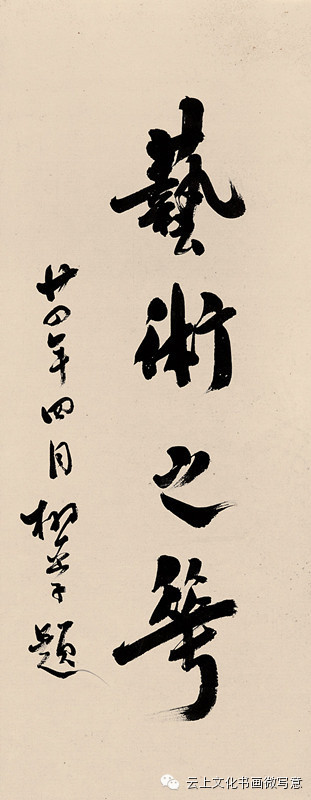 藝術之華
廿四年四月柳亞子題
云上文化书画微写意